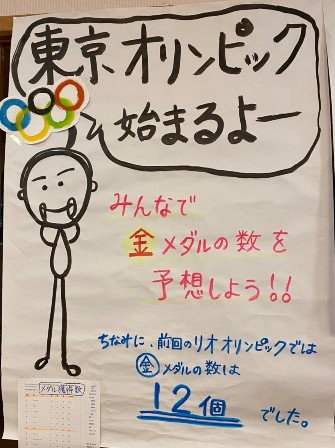 東京オリンピック
始まるよー
みんなで
金メダルの数を
予想しよう!!
ちなみに、前回のリオオリンピックでは
金メダルの数は
12個でした。
メダル獲得数